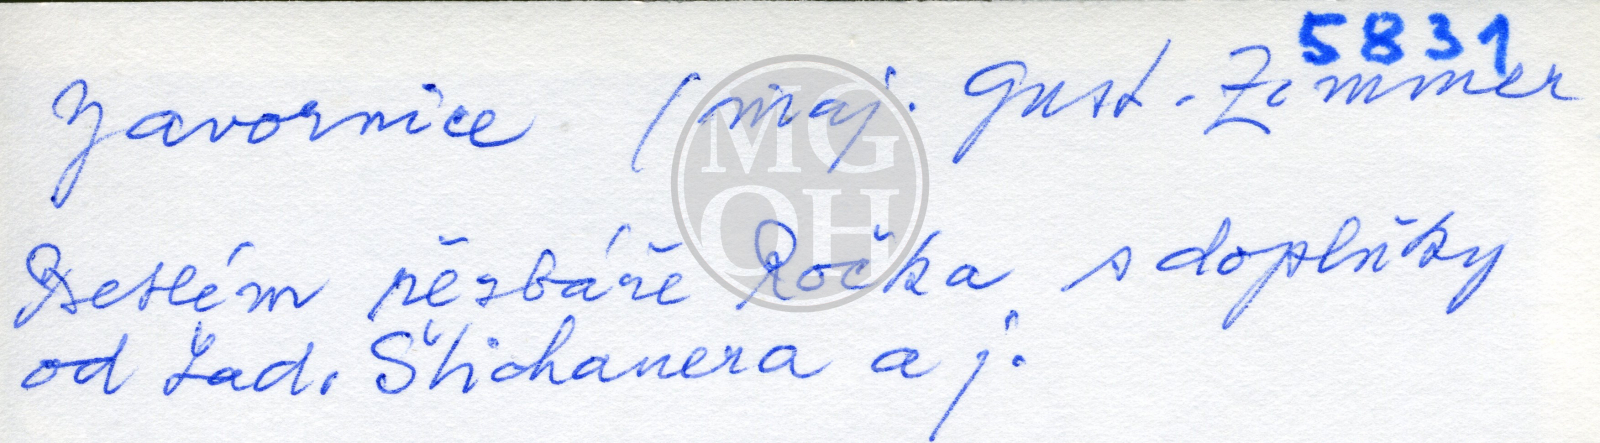 5831
Javornice / maj. Gust. Zimmer
Betlém řezbáře Ročka s doplňky
od Lad. Šlichanera a j.
MG
OH